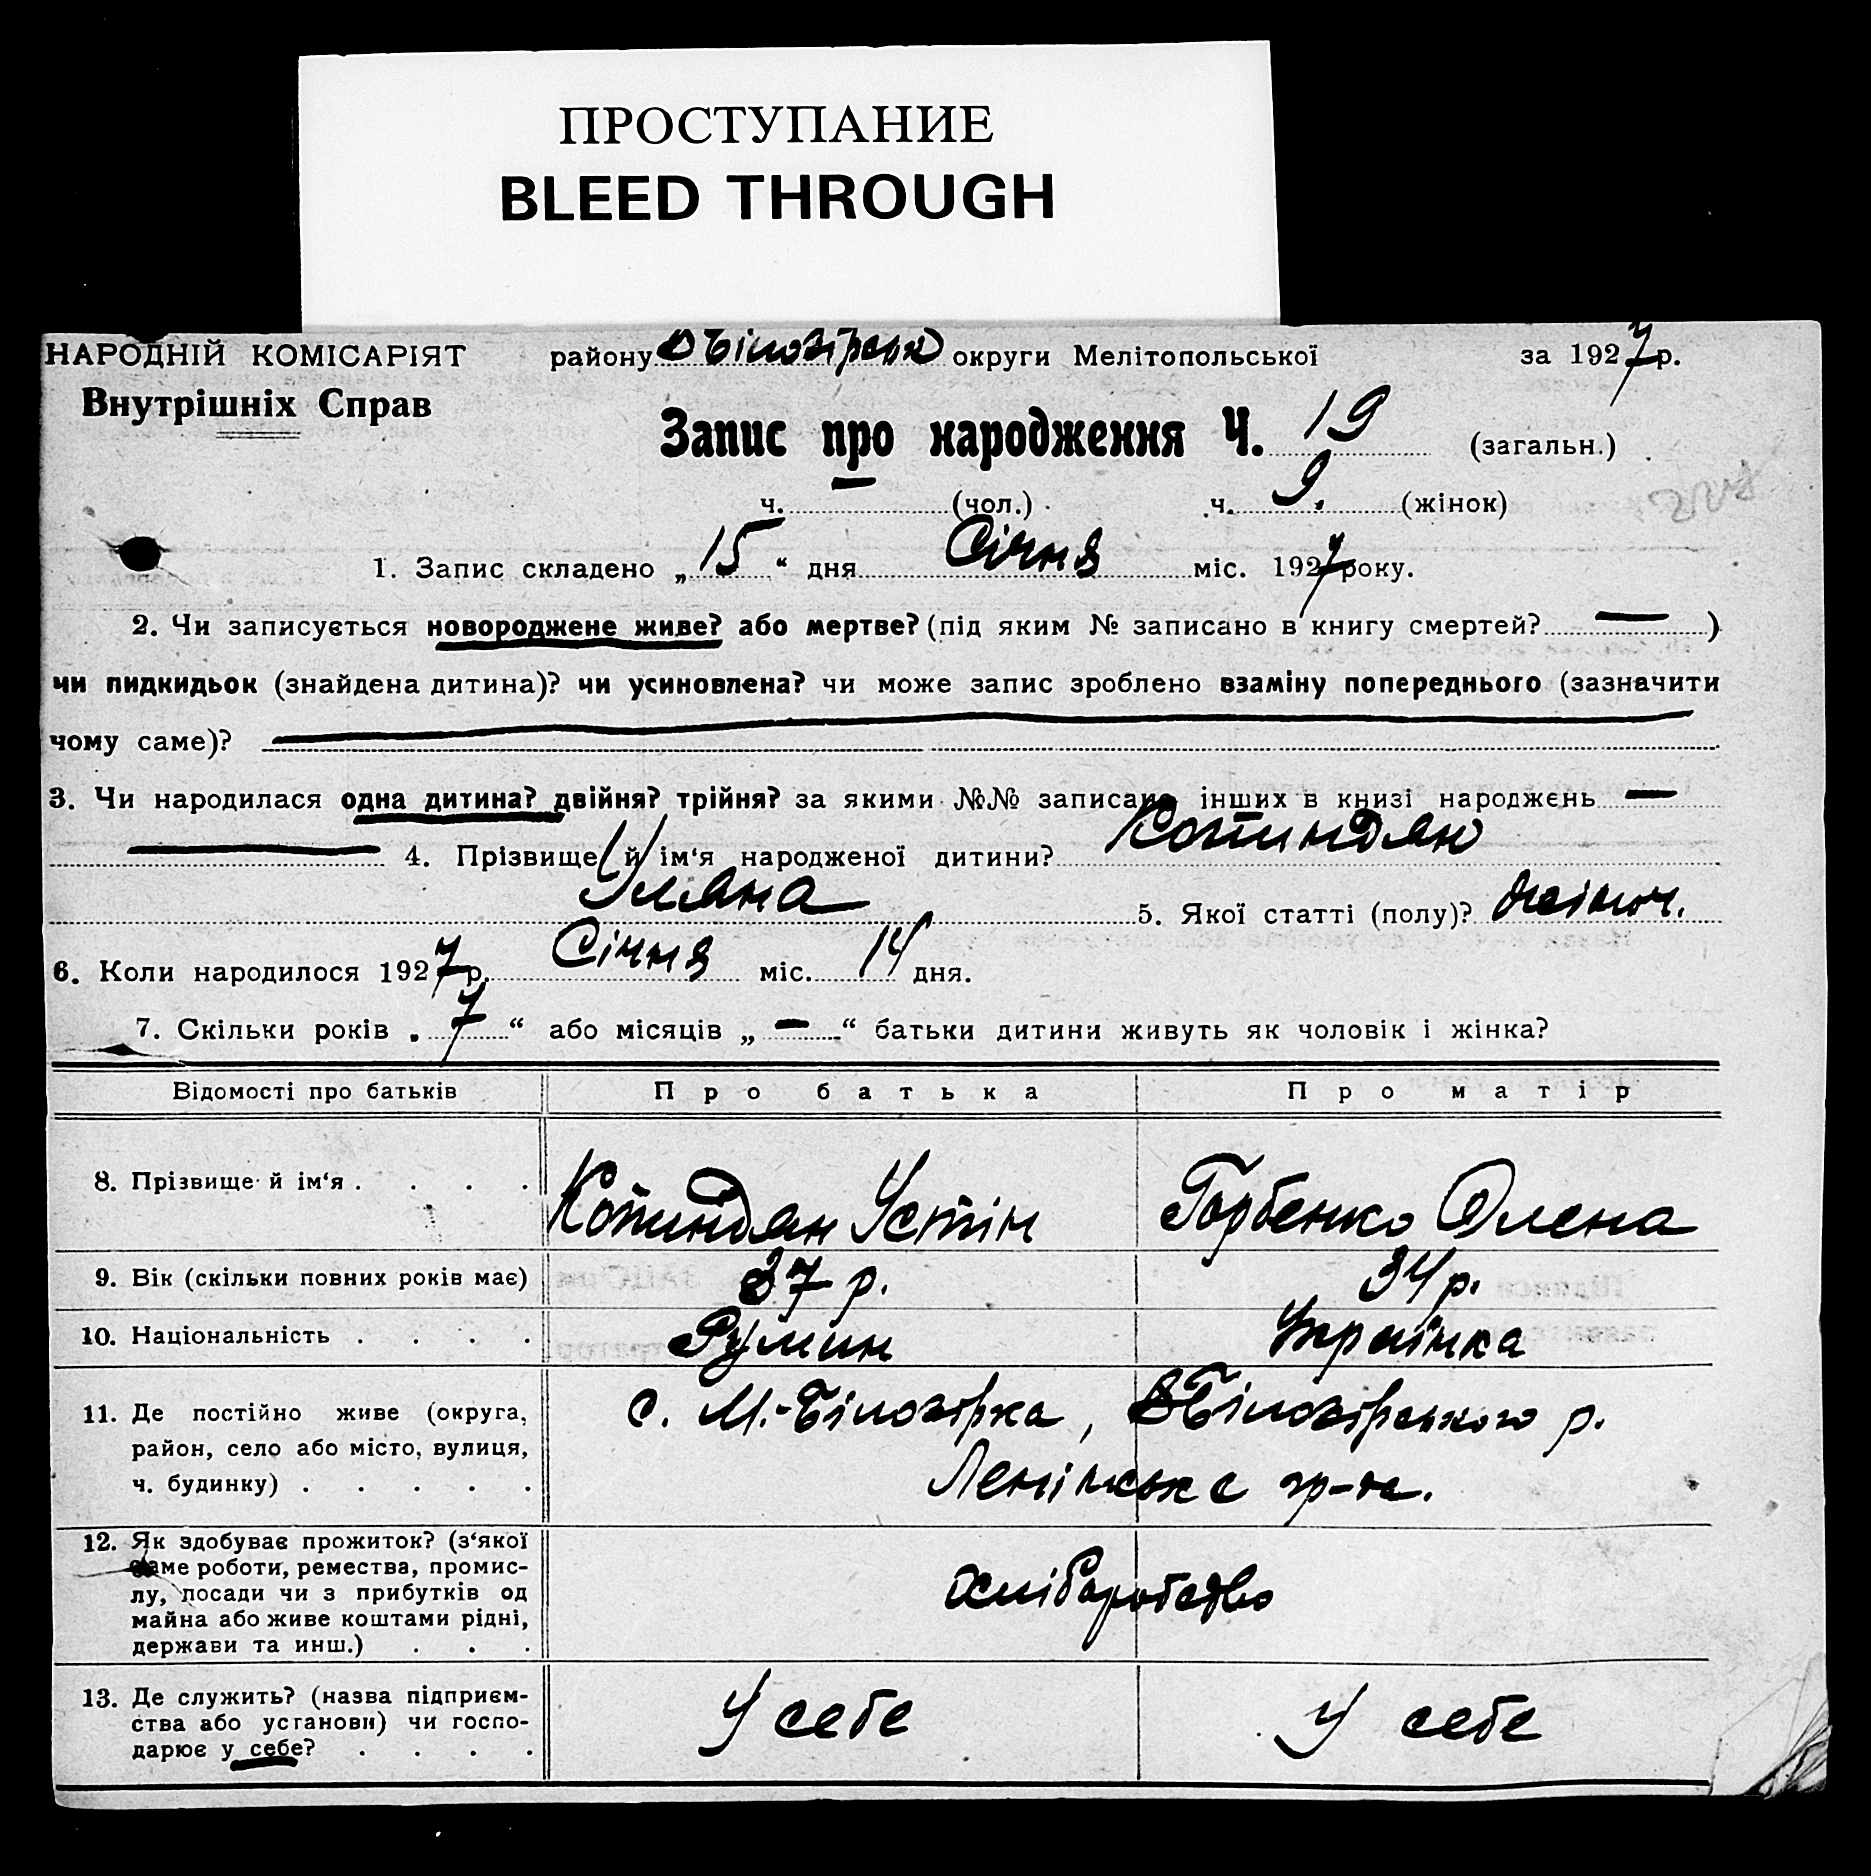 ПРОСТУПАНИЕ
BLEED THROUGH
НАРОДНІЙ КОМІСАРІЯТ району округи Мелітопольської за 1927 р.
Внутрішніх Справ
Запис про народження Ч. 19 (загальн.)
ч. — (чол.) ч. 9. (жінок)
1. Запис складено „ 15 “ дня Січня міс. 1927 року.
2. Чи записується новороджене живе? або мертве? (під яким № записано в книгу смертей? — )
чи пидкидьок (знайдена дитина)? чи усиновлена? чи може запис зроблено взаміну попереднього (зазначити
чому саме)? —
3. Чи народилася одна дитина? двійня? трійня? за якими №№ записано інших в книзі народжень —
— 4. Прізвище й ім‘я народженої дитини? Котиндян
Уляна 5. Якої статті (полу)? жіноч.
6. Коли народилося 1927 р. Січня міс. 14 дня.
7. Скільки років „ 7 “ або місяців „ — “ батьки дитини живуть як чоловік і жінка?
Відомості про батьків Про батька Про матір
8. Прізвище й ім‘я . . . . Котиндян Устін Горбенко Олена
9. Вік (скільки повних років має) 37 р. 34 р.
10. Національність . . . . Румин Українка
11. Де постійно живе (округа, с. М.-Білозірка, ВБілозірського р.
район, село або місто, вулиця,
ч. будинку) . . . . . Ленінське
12. Як здобуває прожиток? (з‘якої
саме роботи, ремества, промис-
лу, посади чи з прибутків од хліборобство
майна або живе коштами рідні,
держави та инш.) . . .
13. Де служить? (назва підприєм- У себе У себе
ства або установи) чи госпо-
дарює у себе? . . . .